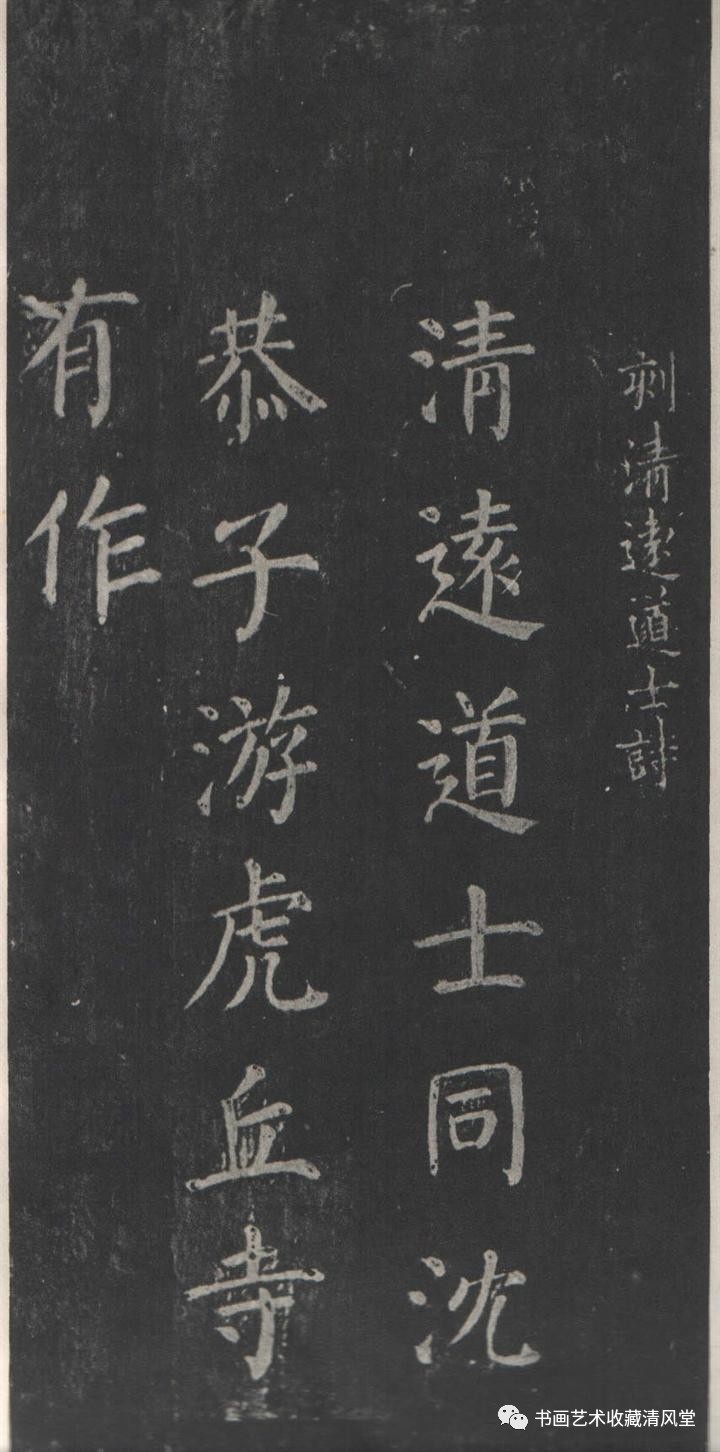 刻清遠道士詩
清遠道士同沈
恭子游虎丘寺
有作
书画艺术收藏清风堂